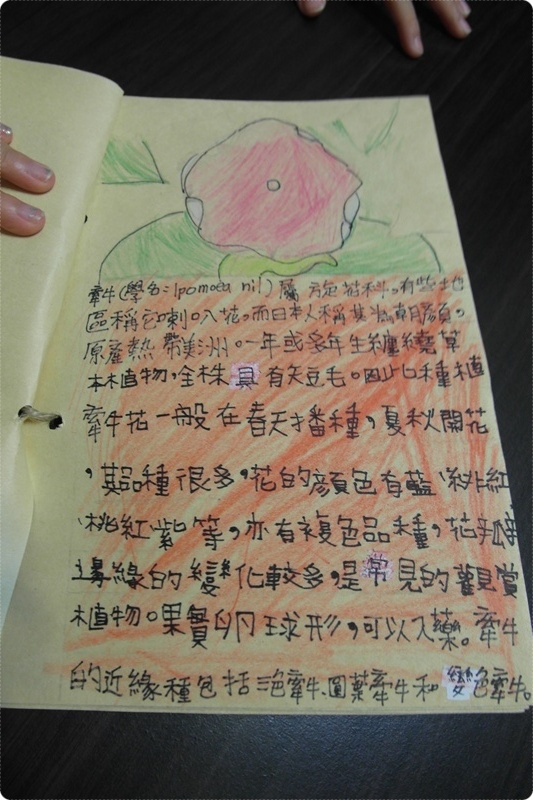 牽牛(學名:Ipomoea nil)屬旋花科。有些地
區稱它喇叭花。而日本人稱其為朝顏。
原產熱帶美洲。一年或多年生纏繞草
本植物,全株具有天豆毛。四山七種植
牽牛花一般在春天播種,夏秋開花
,其品種很多,花的顏色有藍、緋紅
、桃紅、紫等,亦有複色品種,花瓣
邊緣的變化較多,是常見的觀賞
植物。果實卵球形,可以入藥。牽牛
的近緣種包括三色牽牛、圓葉牽牛和變色牽牛。